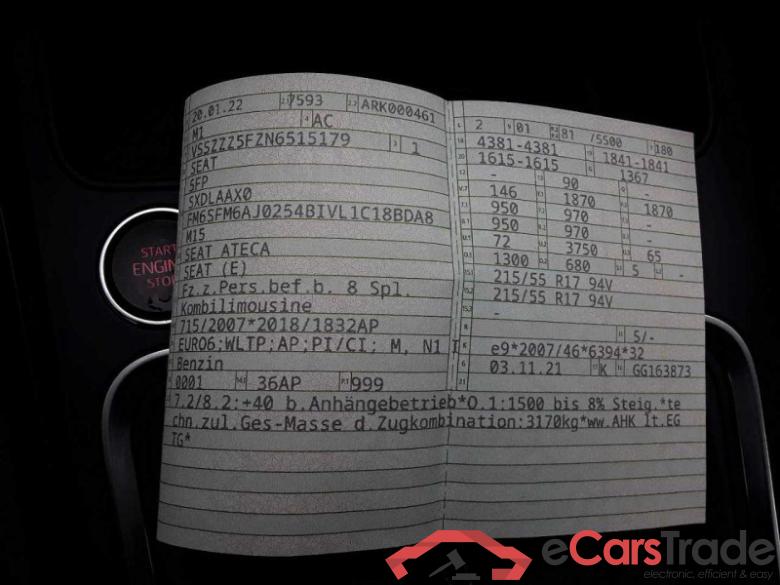 20.01.22 7593 ARK000461
M1 AC
VSSZZZ5FZN6515179 1
SEAT
5FP
SXDLAAX0
FM6SFM6AJ0254BIVL1C18BDA8
M15
SEAT ATECA
SEAT (E)
Fz.z.Pers.bef.b. 8 Spl.
Kombilimousine
715/2007*2018/1832AP
EURO6;WLTP;AP;PI/CI; M, N1 I
Benzin
0001 36AP 999
2 01 81 /5500 180
4381-4381 1841-1841
1615-1615 1367
- 90 -
146 1870 1870
950 970 -
950 970 -
72 3750 65
1300 680 5 -
215/55 R17 94V
215/55 R17 94V
-
5/-
e9*2007/46*6394*32
03.11.21 K GG163873
7.2/8.2:+40 b.Anhängebetrieb*O.1:1500 bis 8% Steig.*te
chn.zul.Ges-Masse d.Zugkombination:3170kg*ww.AHK lt.EG
TG*
START
ENGINE
STOP
eCarsTrade
electronic, efficient & easy